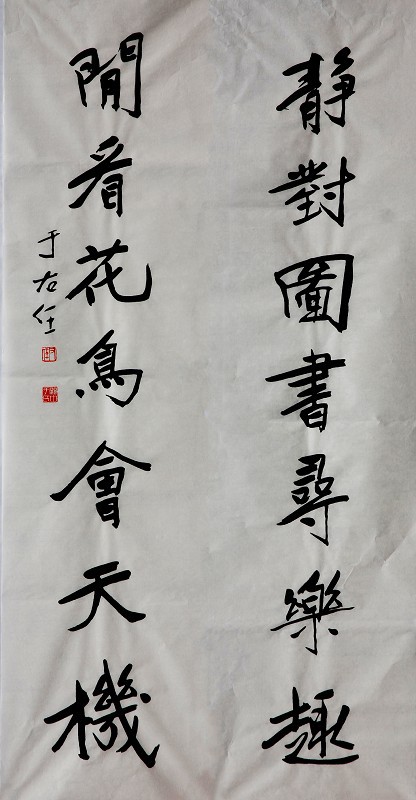 靜對圖書尋樂趣
閒看花鳥會天機
于右任